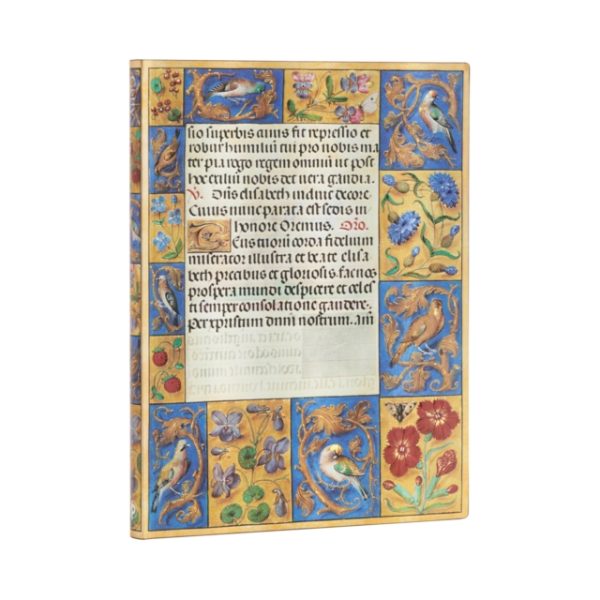 sio superbis cuius fit repressio et
robur humiliu cui pro nobis ma
ter pia rogo regem omniu ut post
hoc exiliu nobis det vera gaudia.
V. Dns elisabeth induit decore.
Cuius nunc parata est sedis in
honore Oremus. Oro.
Tuorū corda fidelium
miserator illustra et beate elisa
beth precibus et gloriosis fac nos
prospera mundi despicere et celes
ti semper consolatione gaudere.
Per xpristum dnm nostrum. am